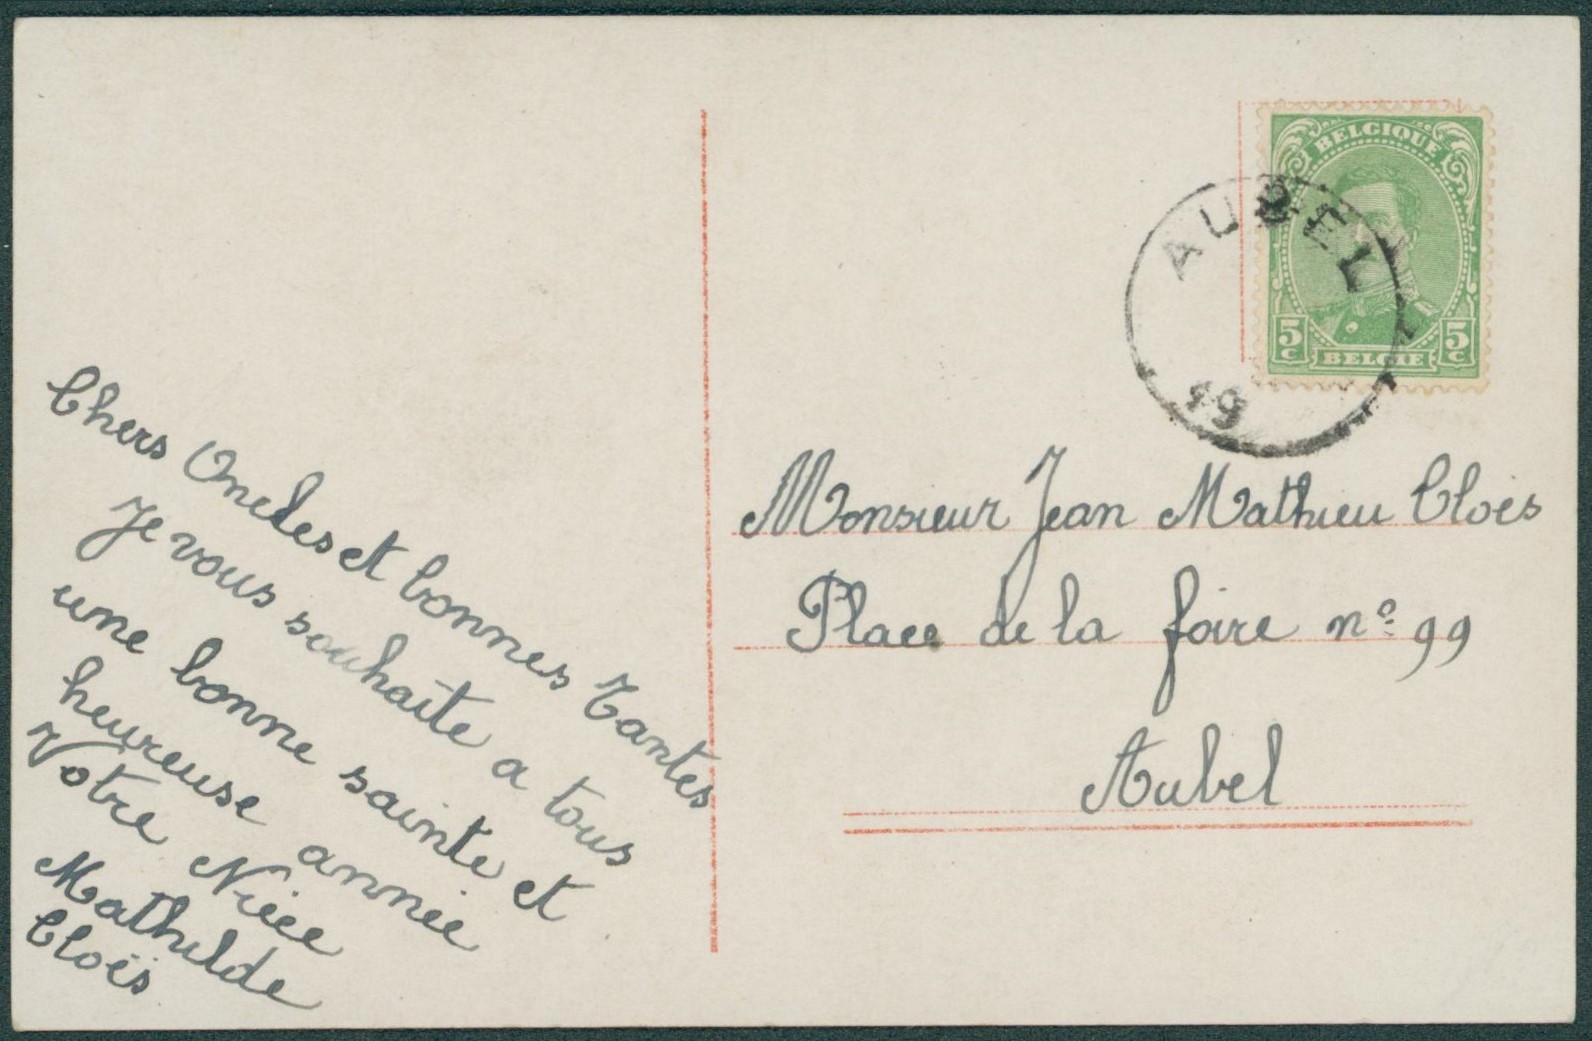 Chers Oncles et bonnes Tantes
Je vous souhaite a tous
une bonne sainte et
heureuse année
Votre Nièce
Mathilde
Cloës
BELGIQUE
5 C
5 C
BELGIE
AUBEL
19
Monsieur Jean Mathieu Cloës
Place de la foire nº 99
Aubel